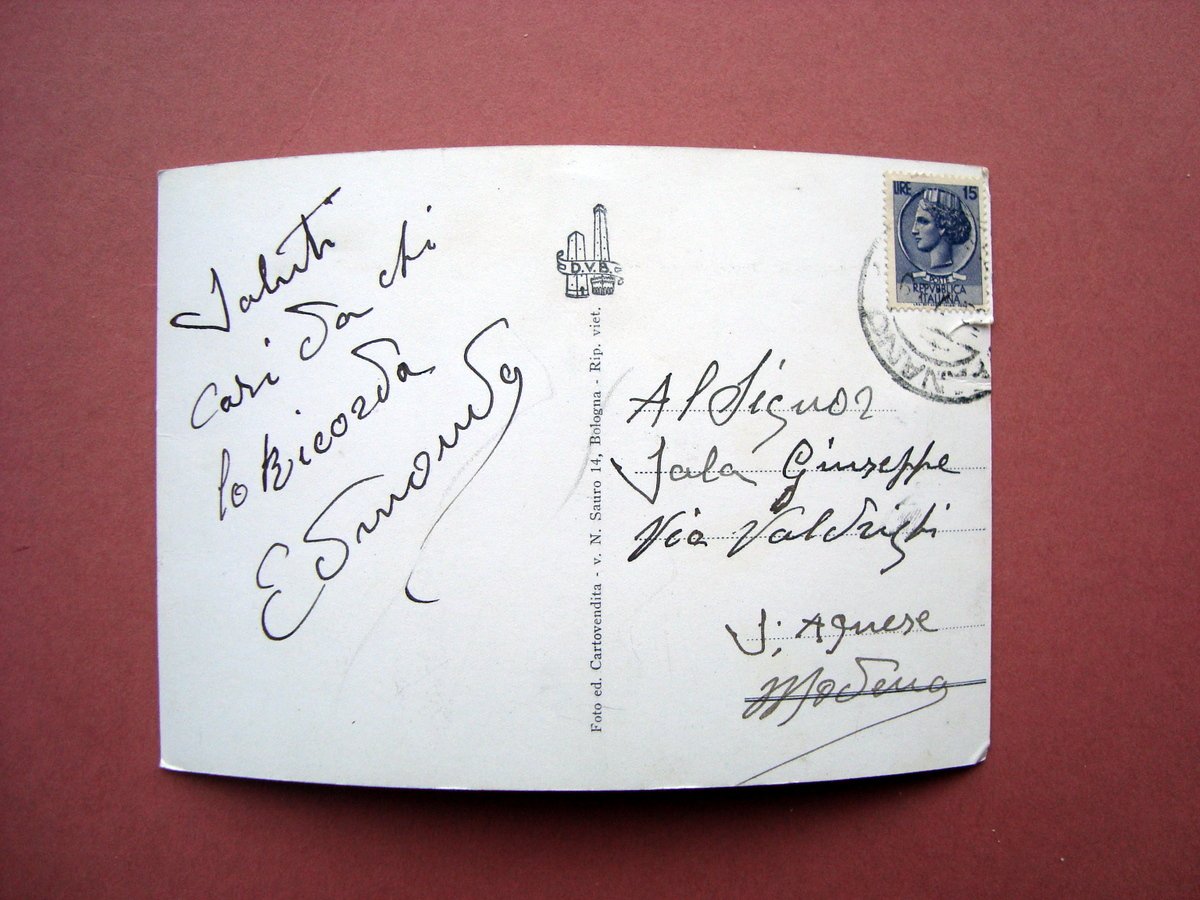 Saluti
cari da chi
lo Ricorda
Edmonda
D.V.B.
Foto ed. Cartovendita - v. N. Sauro 14, Bologna - Rip. viet.
LIRE 15
POSTE
REPVBBLICA
ITALIANA
Al Signor
Sala Giuseppe
Via Valdrighi
S. Agnese
Modena